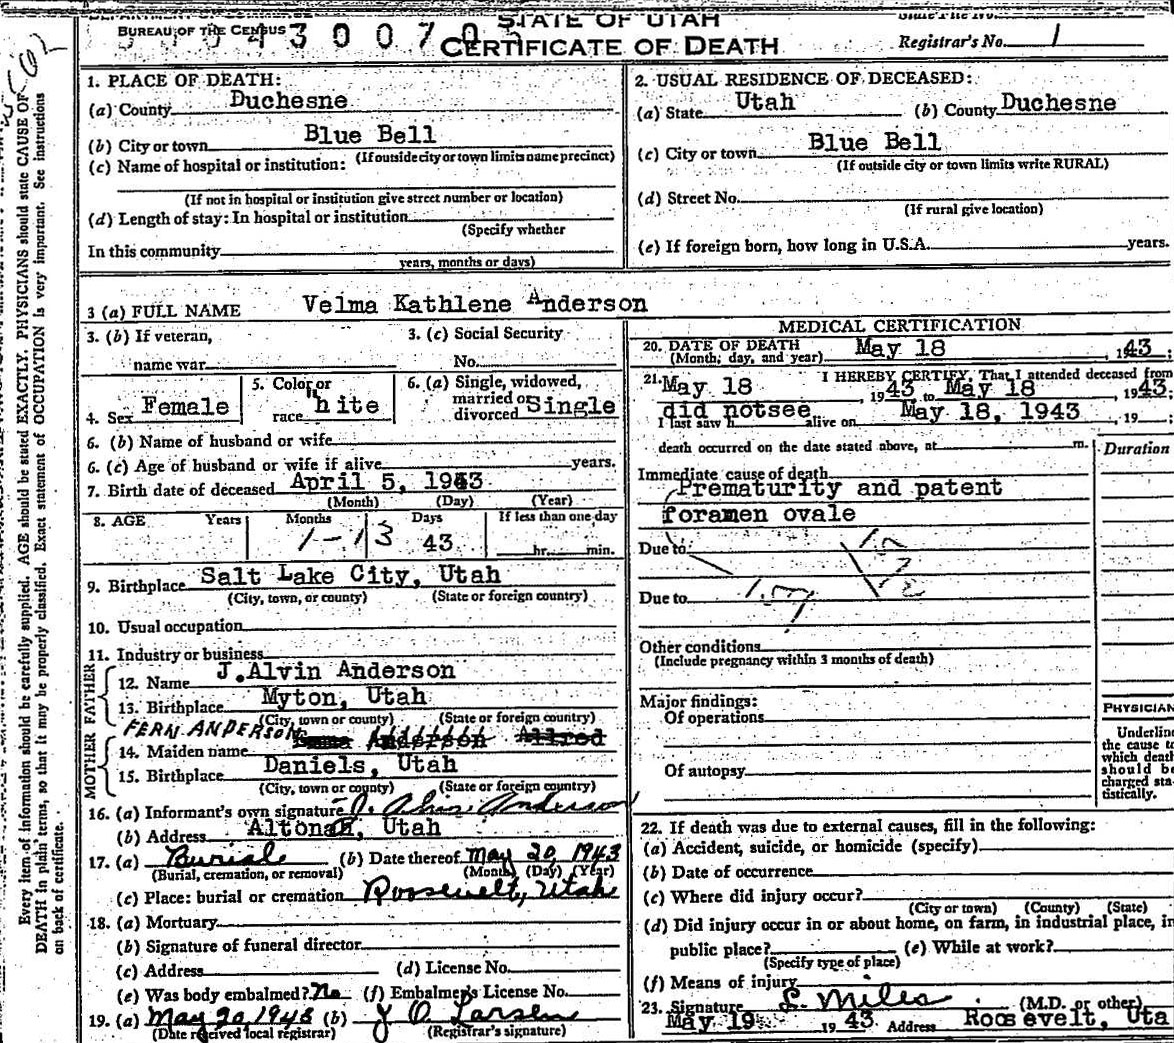 STATE OF UTAH
BUREAU OF THE CENSUS
CERTIFICATE OF DEATH
Registrar's No. 1
1. PLACE OF DEATH:
(a) County Duchesne
(b) City or town Blue Bell
(If outside city or town limits name precinct)
(c) Name of hospital or institution:
(If not in hospital or institution give street number or location)
(d) Length of stay: In hospital or institution
(Specify whether
In this community
years, months or days)
2. USUAL RESIDENCE OF DECEASED:
(a) State Utah (b) County Duchesne
(c) City or town Blue Bell
(If outside city or town limits write RURAL)
(d) Street No.
(If rural give location)
(e) If foreign born, how long in U.S.A. years.
3 (a) FULL NAME Velma Kathlene Anderson
3. (b) If veteran, 3. (c) Social Security
name war No.
4. Sex Female 5. Color or race White 6. (a) Single, widowed, married or divorced Single
6. (b) Name of husband or wife
6. (c) Age of husband or wife if alive years.
7. Birth date of deceased April 5, 1943
(Month) (Day) (Year)
8. AGE Years Months Days If less than one day
1-13 43 hr. min.
9. Birthplace Salt Lake City, Utah
(City, town, or county) (State or foreign country)
10. Usual occupation
11. Industry or business
FATHER
12. Name J. Alvin Anderson
13. Birthplace Myton, Utah
(City, town or county) (State or foreign country)
MOTHER
FERN ANDERSON
14. Maiden name Anderson Allred
15. Birthplace Daniels, Utah
(City, town or county) (State or foreign country)
16. (a) Informant's own signature J. Alvin Anderson
(b) Address Altonah, Utah
17. (a) Burial (b) Date thereof May 20, 1943
(Burial, cremation, or removal) (Month) (Day) (Year)
(c) Place: burial or cremation Roosevelt, Utah
18. (a) Mortuary
(b) Signature of funeral director
(c) Address (d) License No.
(e) Was body embalmed? No (f) Embalmer's License No.
19. (a) May 20 1943 (b) J O Larsen
(Date received local registrar) (Registrar's signature)
MEDICAL CERTIFICATION
20. DATE OF DEATH
(Month, day, and year) May 18, 1943;
21. I HEREBY CERTIFY, That I attended deceased from
May 18 1943 to May 18, 1943;
did not see
I last saw h alive on May 18, 1943, 19 ;
death occurred on the date stated above, at m.
Duration
Immediate cause of death
Prematurity and patent
foramen ovale
Due to
Due to
Other conditions
(Include pregnancy within 3 months of death)
Major findings:
Of operations
Of autopsy
PHYSICIAN
Underline
the cause to
which death
should be
charged sta-
tistically.
22. If death was due to external causes, fill in the following:
(a) Accident, suicide, or homicide (specify)
(b) Date of occurrence
(c) Where did injury occur?
(City or town) (County) (State)
(d) Did injury occur in or about home, on farm, in industrial place, in
public place? (e) While at work?
(Specify type of place)
(f) Means of injury
23. Signature L. Miles (M.D. or other)
May 19 1943 Address Roosevelt, Uta
Every item of information should be carefully supplied. AGE should be stated EXACTLY. PHYSICIANS should state CAUSE OF
DEATH in plain terms, so that it may be properly classified. Exact statement of OCCUPATION is very important. See instructions
on back of certificate.